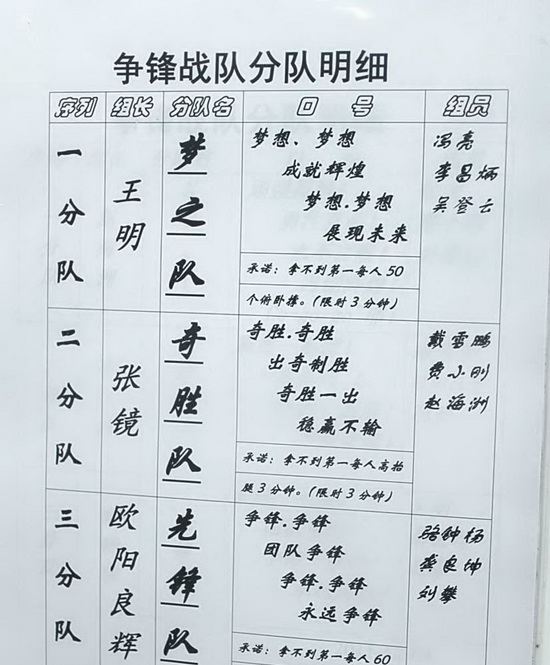 争锋战队分队明细
序列 组长 分队名 口号 组员
一分队
王明
梦之队
梦想、梦想
成就辉煌
梦想.梦想
展现未来
承诺：拿不到第一每人50
个俯卧撑。(限时3分钟)
冯亮
李昌炳
吴登云
二分队
张镜
奇胜队
奇胜.奇胜
出奇制胜
奇胜一出
稳赢不输
承诺：拿不到第一每人高抬
腿3分钟。(限时3分钟)
戴雪鹏
费小刚
赵海洲
三分队
欧阳良辉
先锋队
争锋.争锋
团队争锋
争锋.争锋
永远争锋
承诺：拿不到第一每人60
骆钟杨
龚良坤
刘攀